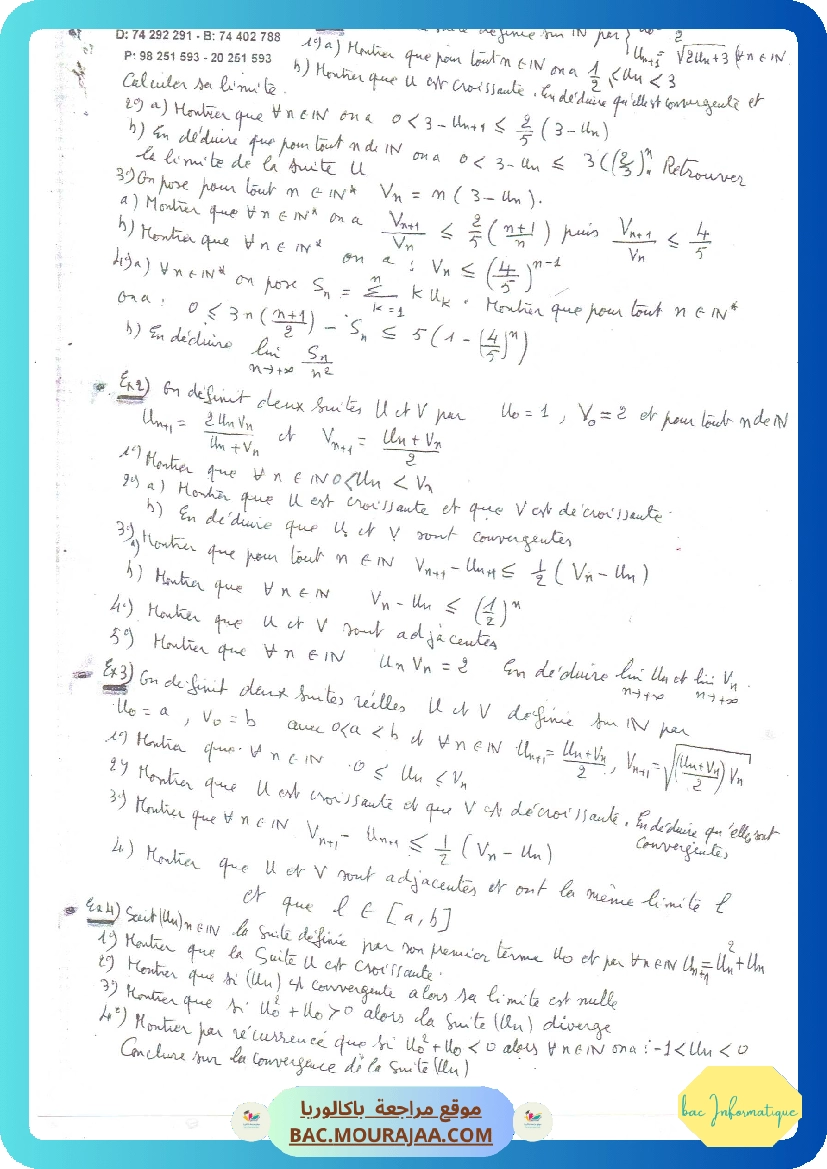 D: 74 292 291 - B: 74 402 788
P: 98 251 593 - 20 251 593
définie sur IN par { U0 =
2
Un+1 = √2Un+3 (∀n ∈ IN
1°) a) Montrer que pour tout n ∈ IN on a 1/2 ≤ Un < 3
b) Montrer que U est croissante. En déduire qu'elle est convergente et
Calculer sa limite.
2°) a) Montrer que ∀n ∈ IN on a 0 < 3 - Un+1 ≤ 2/5 (3 - Un)
b) En déduire que pour tout n de IN on a 0 < 3 - Un ≤ 3(2/5)^n. Retrouver
la limite de la suite U
3°) On pose pour tout n ∈ IN* Vn = n (3 - Un).
a) Montrer que ∀n ∈ IN* on a Vn+1/Vn ≤ 2/5 (n+1/n) puis Vn+1/Vn ≤ 4/5
b) Montrer que ∀n ∈ IN* on a : Vn ≤ (4/5)^n-1
4°) a) ∀n ∈ IN* on pose Sn = Σ(k=1 à n) k Uk. Montrer que pour tout n ∈ IN*
on a : 0 ≤ 3n(n+1/2) - Sn ≤ 5(1 - (4/5)^n)
b) En déduire lim n→+∞ Sn/n²
Ex2) On définit deux suites U et V par U0 = 1, V0 = 2 et pour tout n de IN
Un+1 = 2UnVn/Un+Vn et Vn+1 = Un+Vn/2
1°) Montrer que ∀n ∈ IN 0 < Un < Vn
2°) a) Montrer que U est croissante et que V est décroissante.
b) En déduire que U et V sont convergentes
3°) a) Montrer que pour tout n ∈ IN Vn+1 - Un+1 ≤ 1/2 (Vn - Un)
b) Montrer que ∀n ∈ IN Vn - Un ≤ (1/2)^n
4°) Montrer que U et V sont adjacentes
5°) Montrer que ∀n ∈ IN Un Vn = 2 En déduire lim Un et lim Vn.
n→+∞ n→+∞
Ex3) On définit deux suites réelles U et V définie sur IN par
U0 = a, V0 = b avec 0<a<b et ∀n ∈ IN Un+1 = Un+Vn/2, Vn+1 = √(Un+Vn/2)Vn
1°) Montrer que ∀n ∈ IN 0 ≤ Un ≤ Vn
2°) Montrer que U est croissante et que V est décroissante. En déduire qu'elles sont
convergentes
3°) Montrer que ∀n ∈ IN Vn+1 - Un+1 ≤ 1/2 (Vn - Un)
4°) Montrer que U et V sont adjacentes et ont la même limite l
et que l ∈ [a,b]
Ex4) Soit (Un) n∈IN la suite définie par son premier terme U0 et par ∀n∈IN Un+1 = Un² + Un
1°) Montrer que la suite U est croissante.
2°) Montrer que si (Un) est convergente alors sa limite est nulle
3°) Montrer que si U0² + U0 > 0 alors la suite (Un) diverge
4°) Montrer par récurrence que si U0² + U0 < 0 alors ∀n∈IN on a : -1 < Un < 0
Conclure sur la convergence de la suite (Un)
موقع مراجعة باكالوريا
BAC.MOURAJAA.COM
bac Informatique